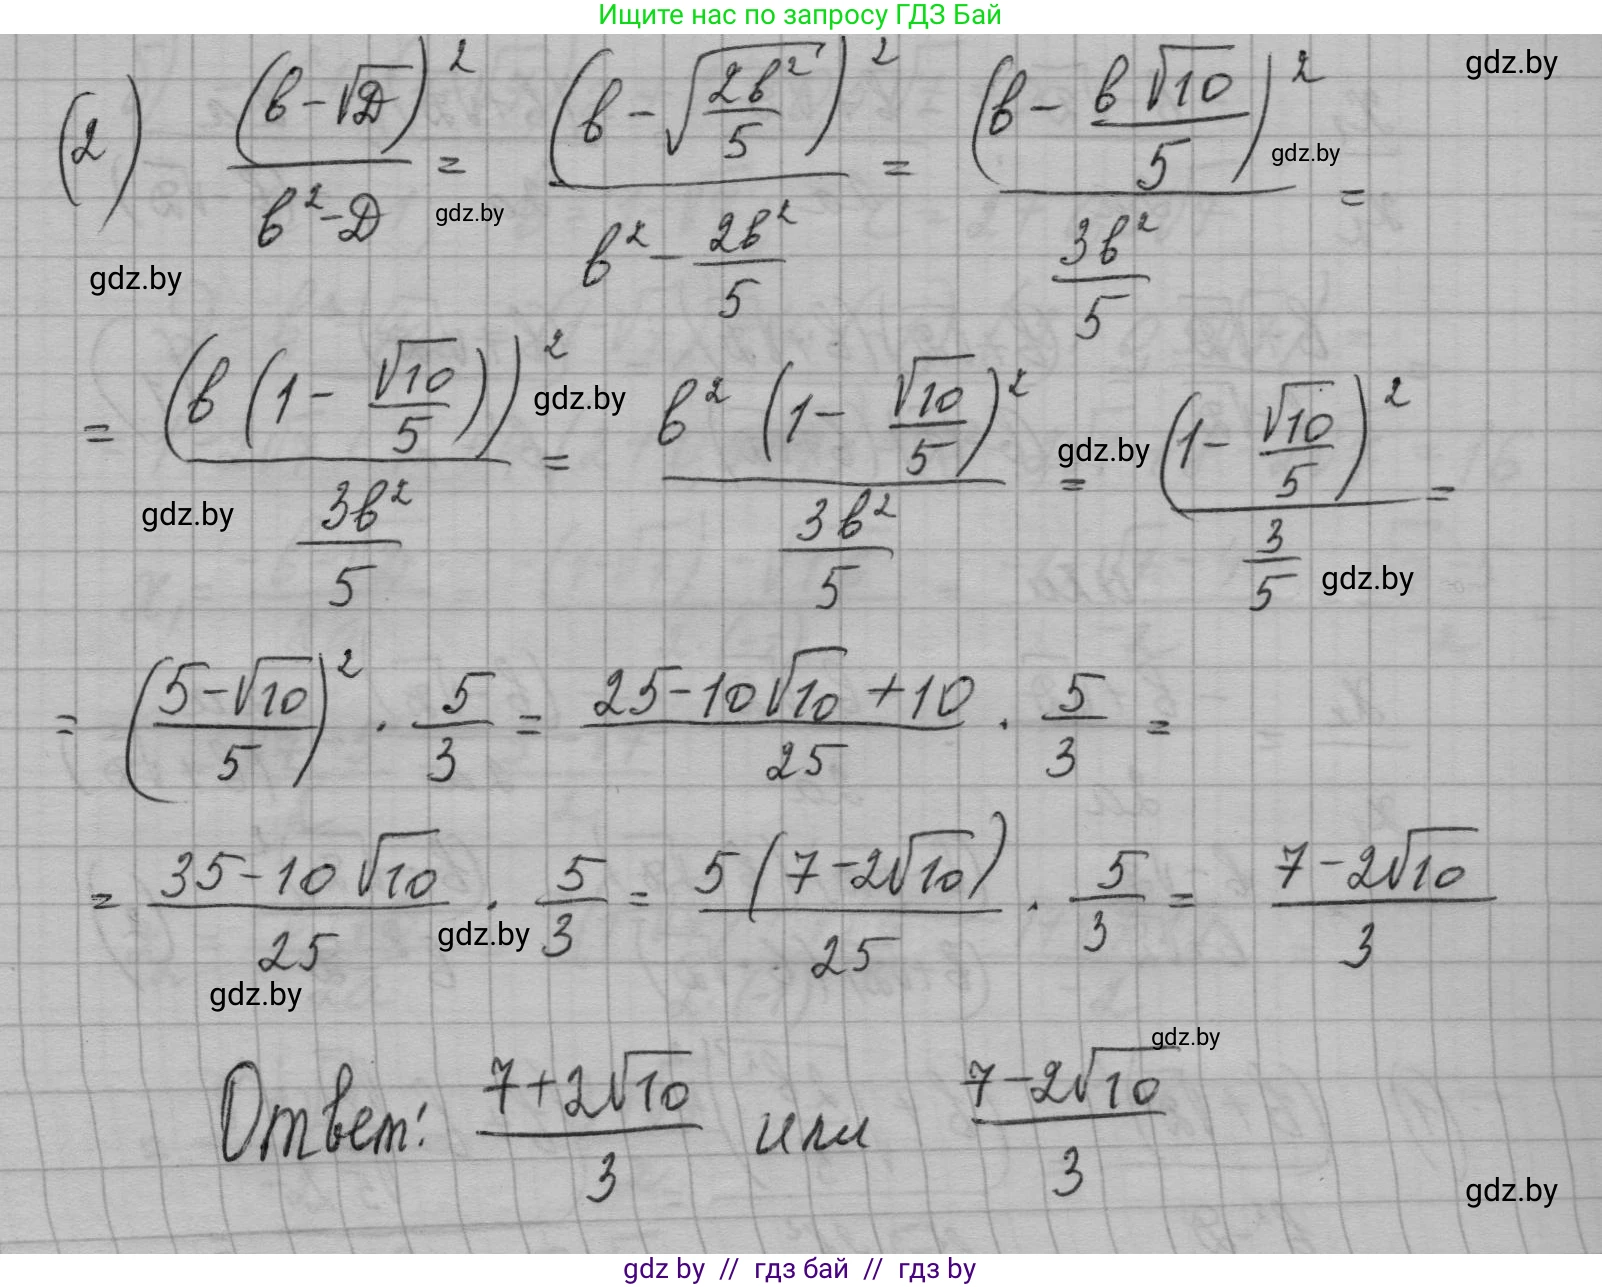 Ищите нас по запросу ГДЗ Бай
gdz.by
(2) (b-√D)²/(b²-D) = (b-√(2b²/5))²/(b²-2b²/5) = (b-b√10/5)²/(3b²/5) =
gdz.by
gdz.by
gdz.by
= (b(1-√10/5))²/(3b²/5) = b²(1-√10/5)²/(3b²/5) = (1-√10/5)²/(3/5) =
gdz.by
gdz.by
gdz.by
gdz.by
= ((5-√10)/5)² · 5/3 = (25-10√10+10)/25 · 5/3 =
= (35-10√10)/25 · 5/3 = 5(7-2√10)/25 · 5/3 = (7-2√10)/3
gdz.by
gdz.by
gdz.by
Ответ: (7+2√10)/3 или (7-2√10)/3
gdz.by
gdz by // гдз бай // гдз by